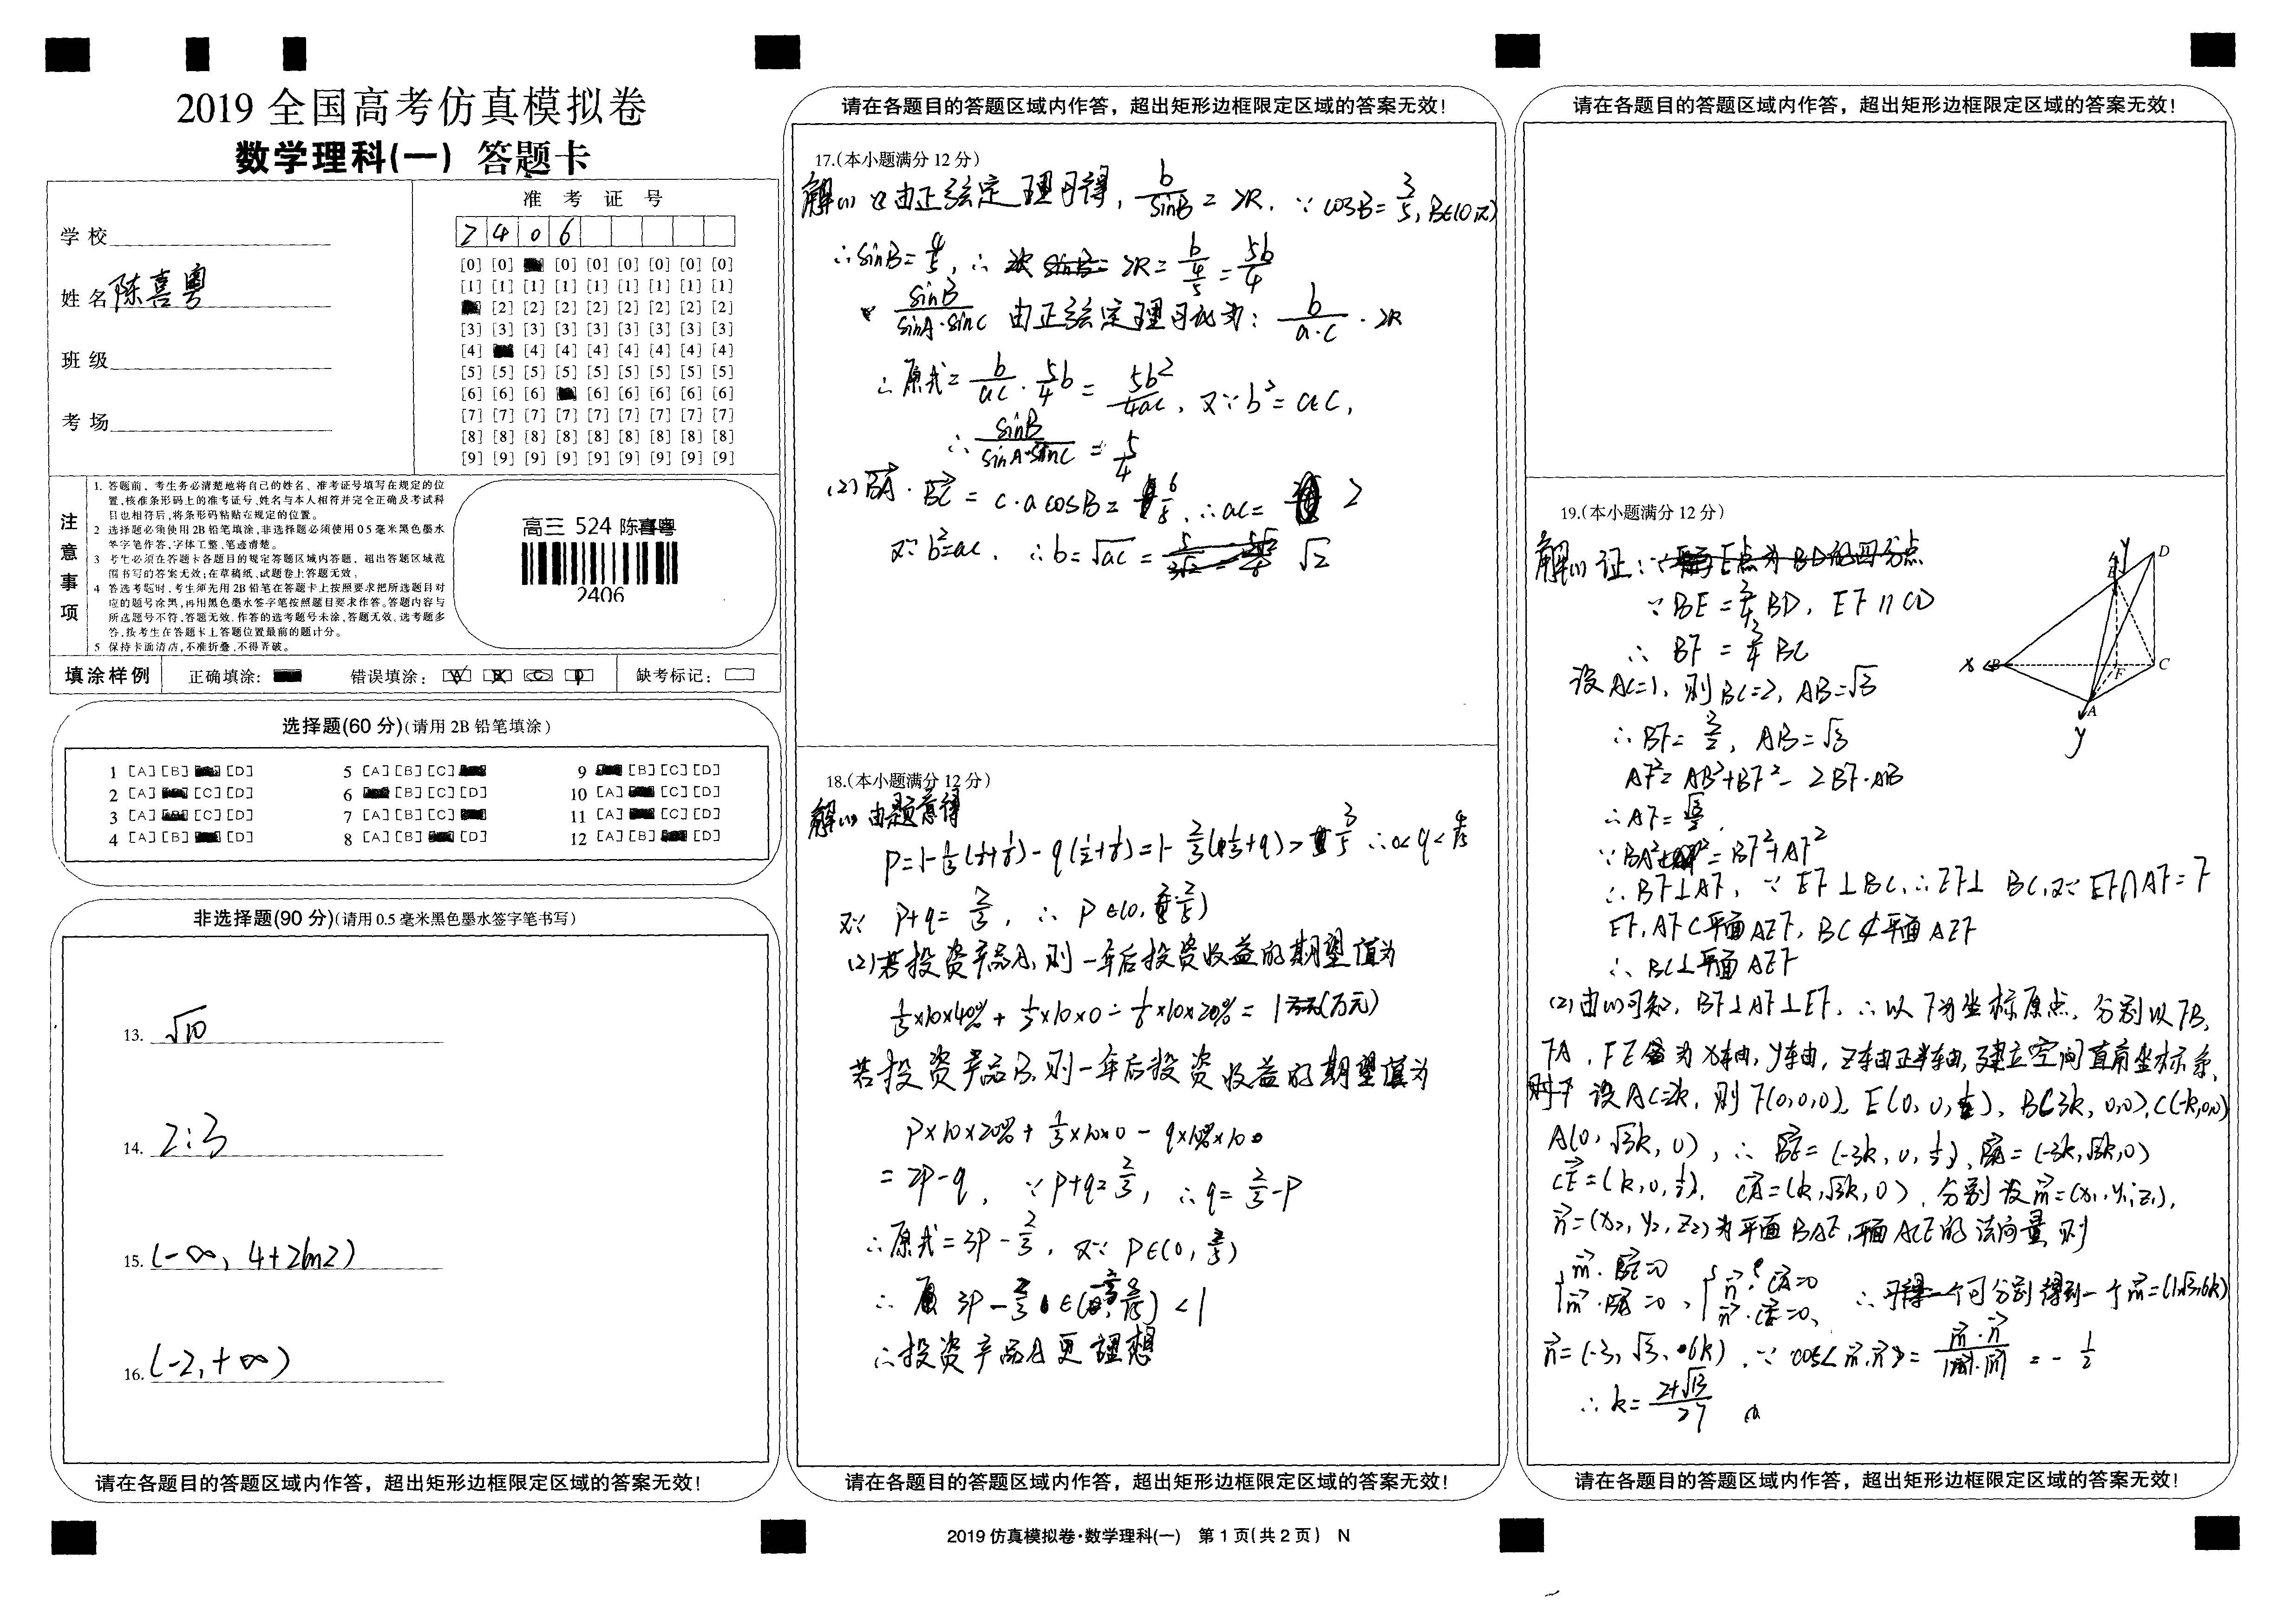 2019 全国高考仿真模拟卷
数学理科(一) 答题卡
学校
姓名 陈喜粤
班级
考场
准 考 证 号
2 4 0 6
[0] [0] [0] [0] [0] [0] [0] [0]
[1] [1] [1] [1] [1] [1] [1] [1] [1]
[2] [2] [2] [2] [2] [2] [2] [2]
[3] [3] [3] [3] [3] [3] [3] [3] [3]
[4] [4] [4] [4] [4] [4] [4] [4]
[5] [5] [5] [5] [5] [5] [5] [5] [5]
[6] [6] [6] [6] [6] [6] [6] [6]
[7] [7] [7] [7] [7] [7] [7] [7] [7]
[8] [8] [8] [8] [8] [8] [8] [8] [8]
[9] [9] [9] [9] [9] [9] [9] [9] [9]
注意事项
1. 答题前，考生务必清楚地将自己的姓名、准考证号填写在规定的位
置,核准条形码上的准考证号、姓名与本人相符并完全正确及考试科
目也相符后,将条形码粘贴在规定的位置。
2 选择题必须使用 2B 铅笔填涂,非选择题必须使用 0.5 毫米黑色墨水
签字笔作答,字体工整,笔迹清楚。
3 考生必须在答题卡各题目的规定答题区域内答题，超出答题区域范
围书写的答案无效;在草稿纸、试题卷上答题无效。
4 答选考题时,考生须先用 2B 铅笔在答题卡上按照要求把所选题目对
应的题号涂黑,再用黑色墨水签字笔按照题目要求作答。答题内容与
所选题号不符,答题无效。作答的选考题号未涂,答题无效。选考题多
答,按考生在答题卡上答题位置最前的题计分。
5 保持卡面清洁,不准折叠、不得弄破。
高三 524 陈喜粤
2406
填涂样例 正确填涂: 错误填涂: 缺考标记:
选择题(60 分)(请用 2B 铅笔填涂)
1 [A] [B] [D] 5 [A] [B] [C] 9 [B] [C] [D]
2 [A] [C] [D] 6 [B] [C] [D] 10 [A] [C] [D]
3 [A] [C] [D] 7 [A] [B] [C] 11 [A] [C] [D]
4 [A] [B] [D] 8 [A] [B] [D] 12 [A] [B] [D]
非选择题(90 分)(请用 0.5 毫米黑色墨水签字笔书写)
13. √10
14. 2:3
15. (-∞, 4+2ln2)
16. (-2,+∞)
请在各题目的答题区域内作答，超出矩形边框限定区域的答案无效!
请在各题目的答题区域内作答，超出矩形边框限定区域的答案无效!
17.(本小题满分 12 分)
解(1) 由正弦定理可得, b/sinB = 2R. ∵ cosB=3/5, B∈(0,π)
∴sinB=4/5, ∴ 2R= b/(4/5) = 5b/4
sinB/(sinA·sinC) 由正弦定理可化为: b/(a·c) · 2R
∴原式= b/ac · 5/4 b = 5b²/4ac, 又∵b²=ac,
∴ sinB/(sinA·sinC) = 5/4
(2) BA · BC = c·a cosB = 6/5, ∴ac= 2
又∵b²=ac, ∴b=√ac = √2
18.(本小题满分 12 分)
解(1) 由题意得
又∵ P+q= 2/3, ∴ P∈(0,
(2)若投资产品A,则一年后投资收益的期望值为
1/3×10×40% + 1/2×10×0 - 1/6×10×20% = 1 (万元)
若投资产品B,则一年后投资收益的期望值为
P×10×20% + 1/3×10×0 - q×10%×10
= 2P-q, ∵P+q=2/3, ∴q= 2/3-P
∴原式=3P-2/3, 又∵ P∈(0,
∴投资产品A更理想
请在各题目的答题区域内作答，超出矩形边框限定区域的答案无效!
2019 仿真模拟卷·数学理科(一) 第 1 页(共 2 页) N
请在各题目的答题区域内作答，超出矩形边框限定区域的答案无效!
19.(本小题满分 12 分)
解(1) 证:
∵BE=3/4 BD, EF∥CD
∴ BF = 3/4 BC
设AC=1, 则BC=2, AB=√3
∴BF= 3/2, AB=√3
AF²=AB²+BF²- 2BF·AB
∴AF=
= BF²+AF²
∴BF⊥AF, ∵ EF⊥BC,∴EF⊥ BC,又∵ EF∩AF=F
EF,AF⊂平面AEF, BC⊄平面AEF
∴ BC⊥平面AEF
(2)由(1)可知, BF⊥AF⊥EF, ∴以F为坐标原点, 分别以FB,
FA, FE 为x轴,y轴,z轴正半轴,建立空间直角坐标系,
设AC=2k, 则F(0,0,0), E(0,0, B(3k,0,0),C(-k,0,0)
A(0,√3k,0), ∴ BE=(-3k,0,1/2), BA=(-3k,√3k,0)
CE=(k,0,1/2), CA=(k,√3k,0), 分别设m=(x₁,y₁,z₁),
n=(x₂,y₂,z₂)为平面BAE,平面ACE的法向量,则
m·BE=0 n·CA=0
m·BA=0, n·CE=0, ∴ 可分别得到一个m=(1,√3,6k)
n=(-3,√3, 6k), ∵ cos<m,n>= m·n/|m|·|n| = -1/2
∴k= 2+√13/27
x B E D C F A y
请在各题目的答题区域内作答，超出矩形边框限定区域的答案无效!